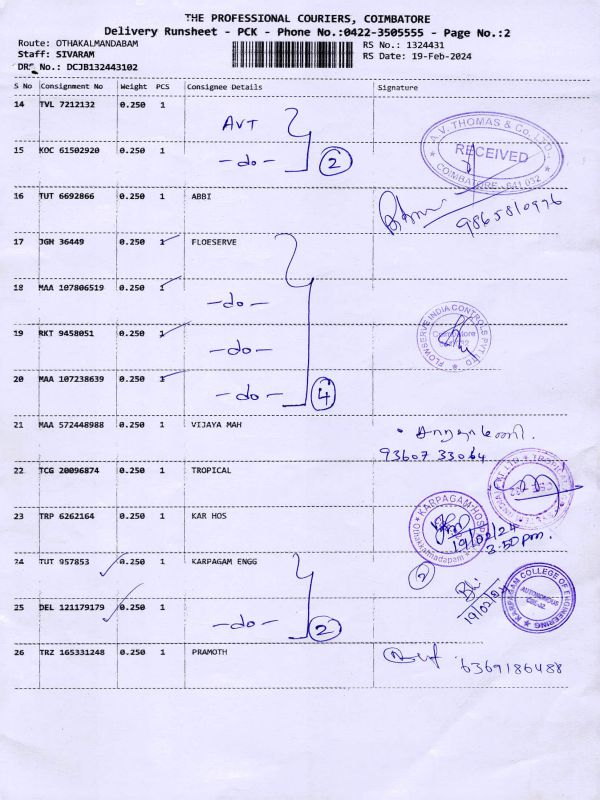 THE PROFESSIONAL COURIERS, COIMBATORE
Delivery Runsheet - PCK - Phone No.:0422-3505555 - Page No.:2
Route: OTHAKALMANDABAM
Staff: SIVARAM
DRS No.: DCJB132443102
RS No.: 1324431
RS Date: 19-Feb-2024
S No Consignment No Weight PCS Consignee Details Signature
14 TVL 7212132 0.250 1 AVT
A.V. THOMAS & Co. LTD.
RECEIVED
COIMBATORE - 641 032
15 KOC 61502920 0.250 1 -do- 2
16 TUT 6692866 0.250 1 ABBI 9865810976
17 JGH 36449 0.250 1 FLOESERVE
18 MAA 107806519 0.250 1 -do-
19 RKT 9458051 0.250 1 -do-
FLOWSERVE INDIA CONTROLS PVT LTD
Coimbatore
20 MAA 107238639 0.250 1 -do- 4
21 MAA 572448988 0.250 1 VIJAYA MAH
93607 33064
22 TCG 20096874 0.250 1 TROPICAL
23 TRP 6262164 0.250 1 KAR HOS
KARPAGAM HOSP
Othakkalmandapam
19/02/24
3.50pm.
24 TUT 957853 0.250 1 KARPAGAM ENGG
2
25 DEL 121179179 0.250 1 -do- 2
KARPAGAM COLLEGE OF ENGINEERING
AUTONOMOUS
CBE-32
26 TRZ 165331248 0.250 1 PRAMOTH 6369186488